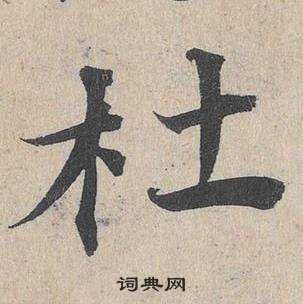 杜
词典网